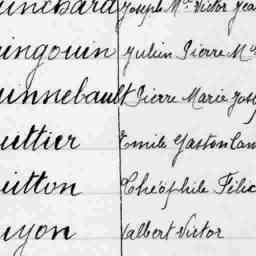 uinebard Joseph Mie Victor Jea
uingouin Julien Pierre M
uinnebault Pierre Marie Jos
uittier Emile Gaston Cam
uitton Théophile Félic
uyon Valbert Victor